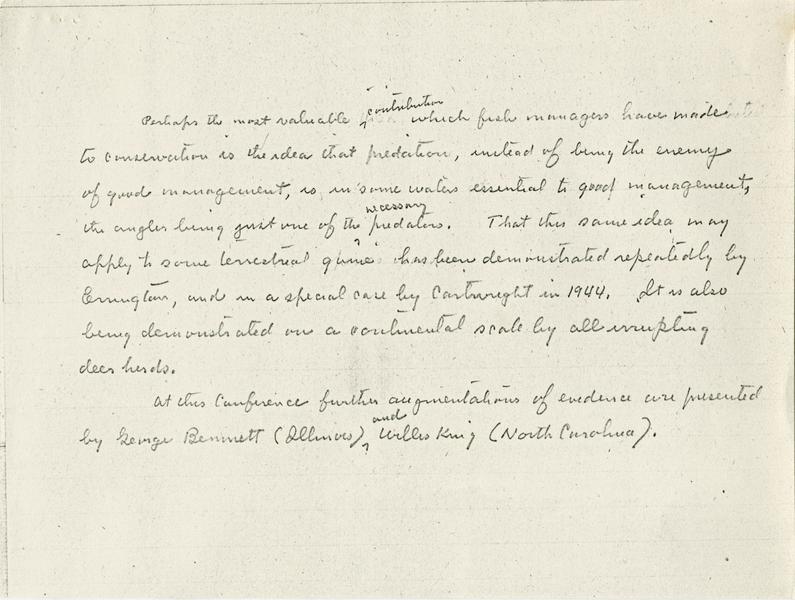 Perhaps the most valuable contribution which fish managers have made
to conservation is the idea that predation, instead of being the enemy
of good management, is in some waters essential to good management,
the angler being just one of the necessary predators. That this same idea may
apply to some terrestrial game has been demonstrated repeatedly by
Errington, and in a special case by Cartwright in 1944. It is also
being demonstrated on a continental scale by all irrupting
deer herds.
At this Conference further augmentations of evidence are presented
by George Bennett (Illinois) and Willis King (North Carolina).